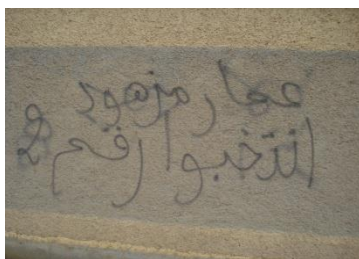 عمار مزهود
انتخبوا رقم 2